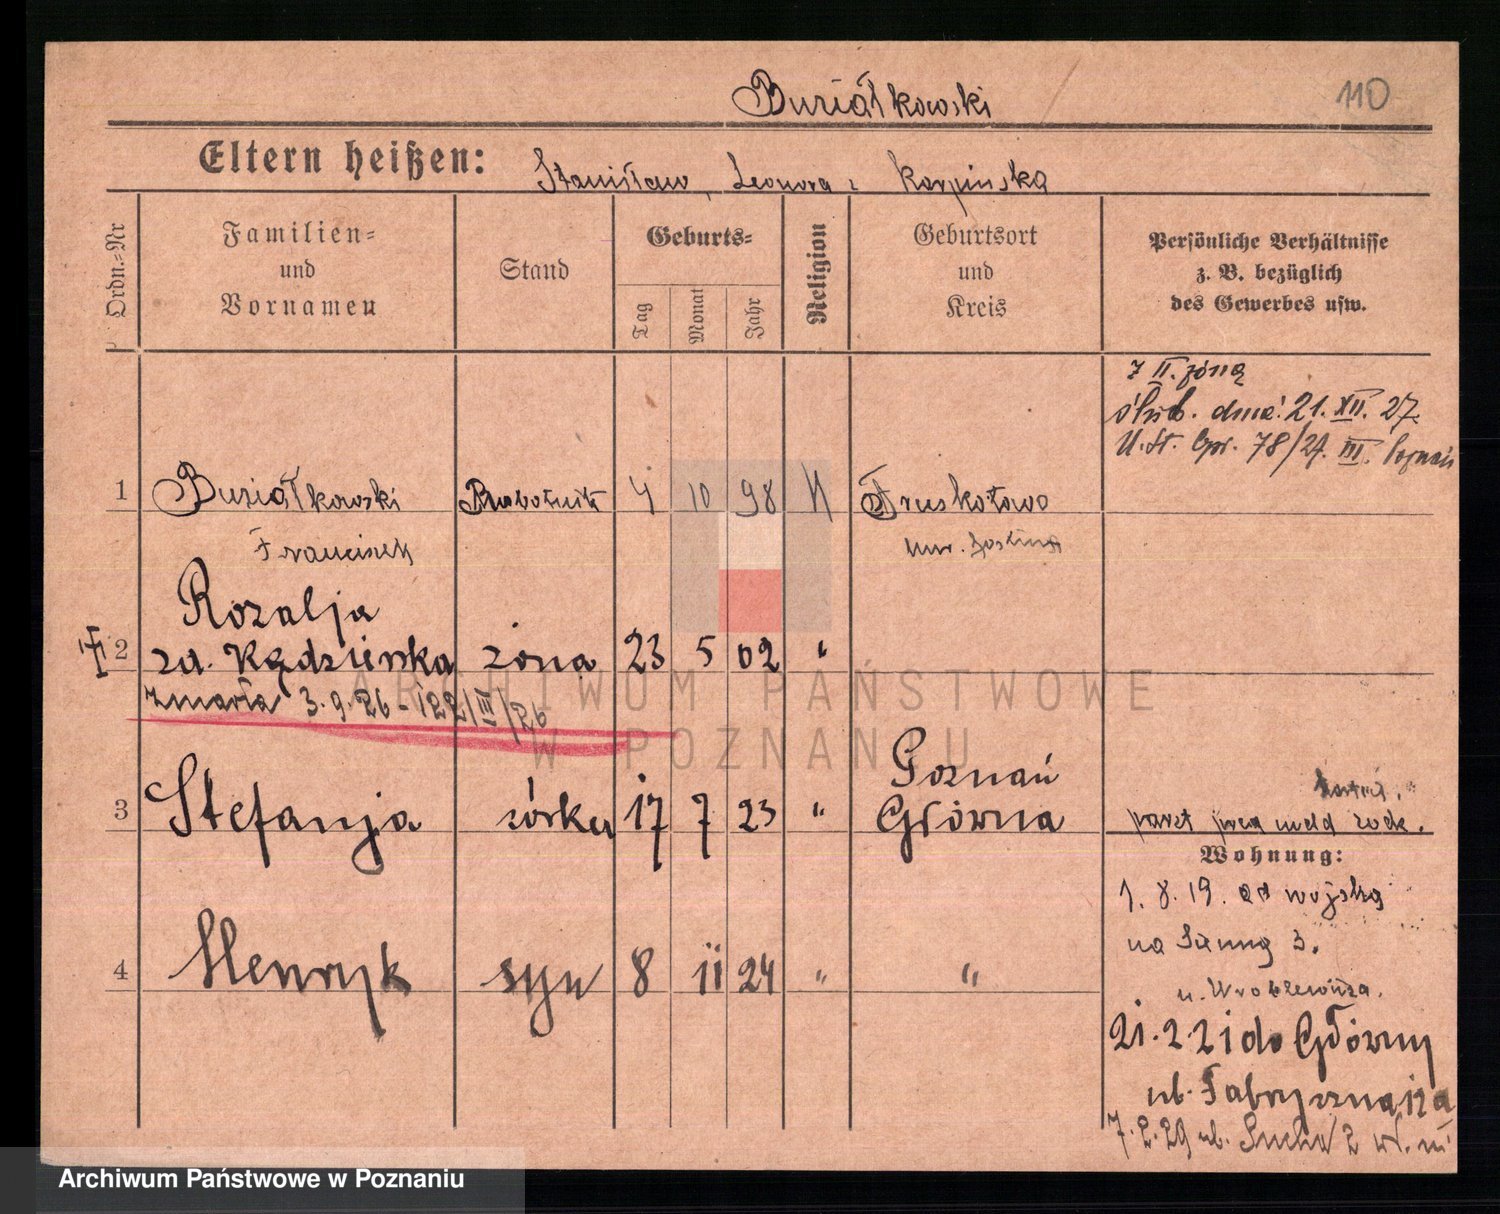 Buziałkowski
110
Eltern heißen: Stanisław, Leonora z Karpińska
Ordn.-Nr
Familien-
und
Vornamen
Stand
Geburts-
Tag
Monat
Jahr
Religion
Geburtsort
und
Kreis
Persönliche Verhältnisse
z. B. bezüglich
des Gewerbes usw.
z II. żoną
ślub. dnia 21. XII. 27.
U. St. Gr. 78/27. III. Poznań
1 Buziałkowski Robotnik 4 10 98 K Truskotowo
Franciszek
Rozalja
2 zd. Kędzierska żona 23 5 02 "
zmarła 3.9.26 - 122/III/26
Poznań
3 Stefanja córka 17 7 23 " Główna
Wohnung:
1. 8. 19. od wojska
na 3.
4 Henryk syn 8 11 24 " "
21.2.21 do Główny
ul. Fabryczna 12a
7.2.29 ul. Sucha 2 wł. m
ARCHIWUM PAŃSTWOWE
W POZNANIU
Archiwum Państwowe w Poznaniu